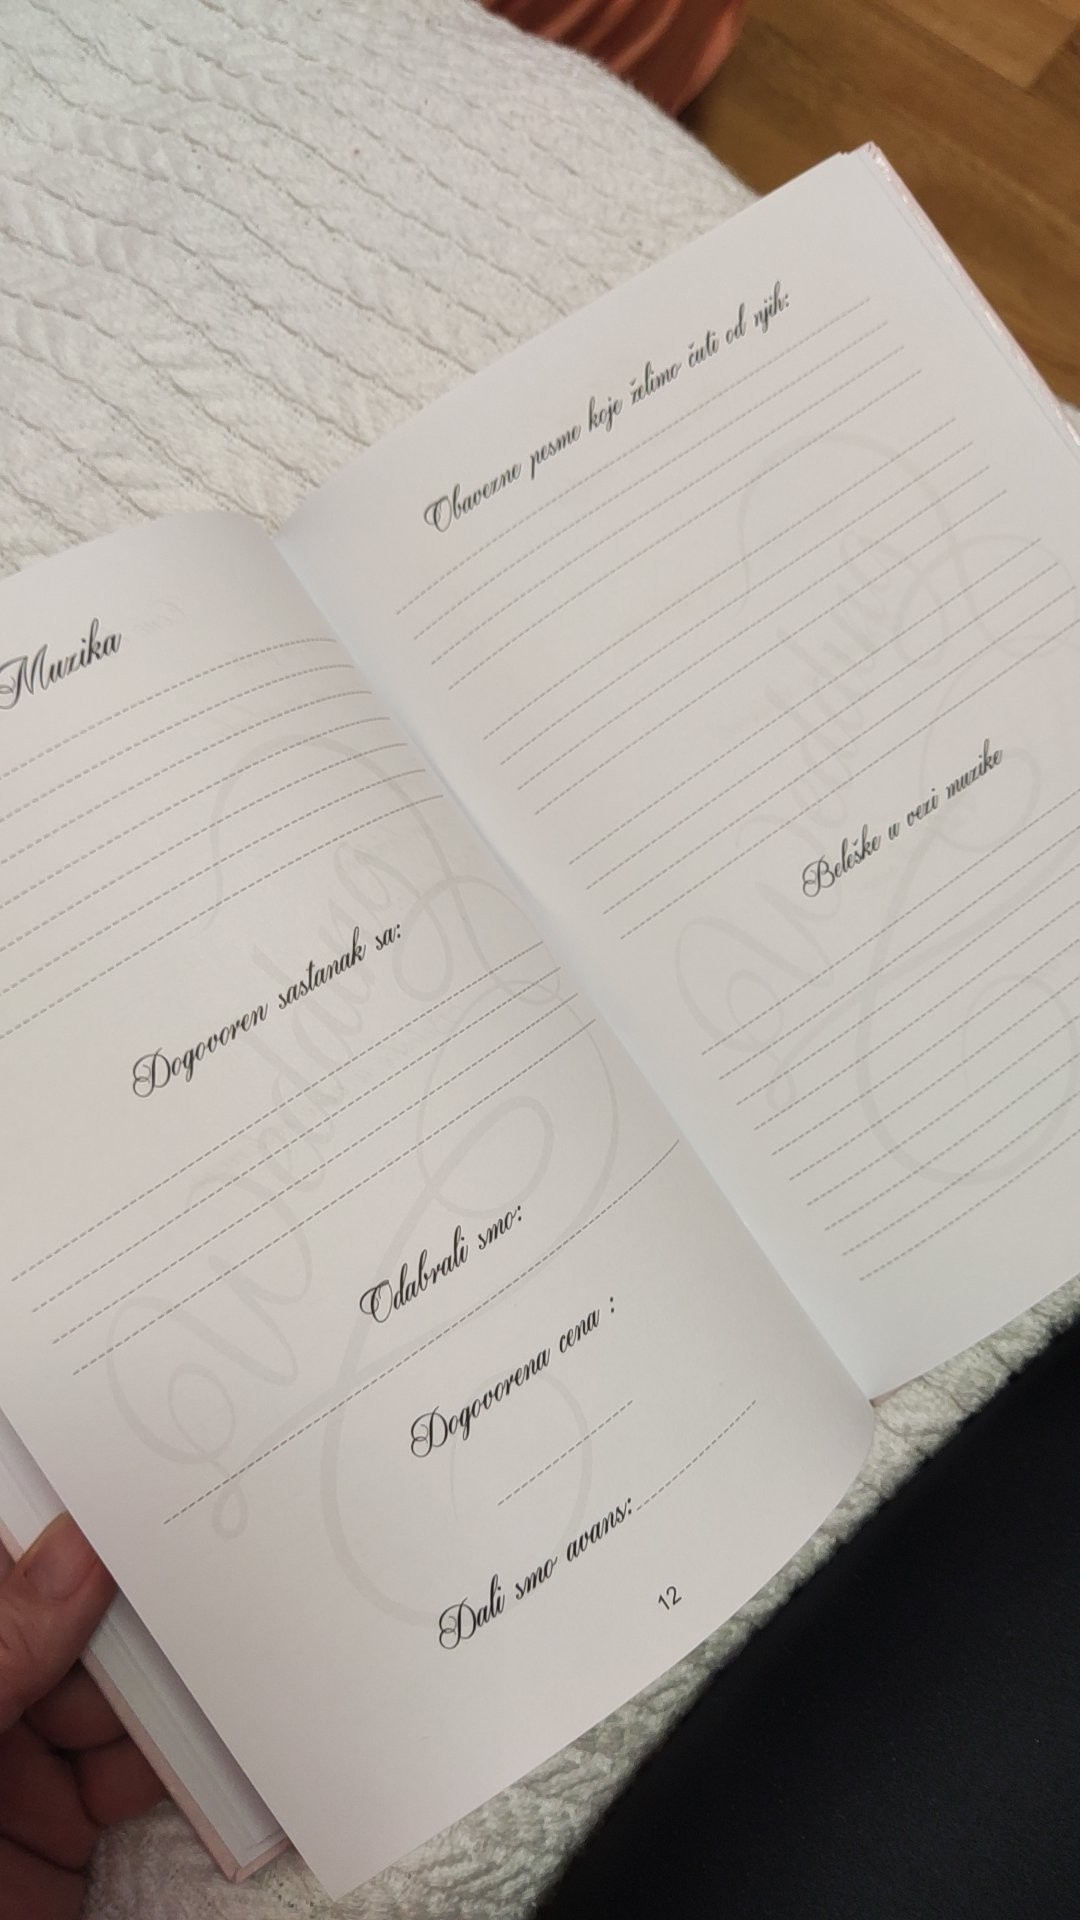 Muzika
Dogovoren sastanak sa:
Odabrali smo:
Dogovorena cena :
Dali smo avans:
12
Wedding
Obavezne pesme koje želimo čuti od njih:
Beleške u vezi muzike
Wedding